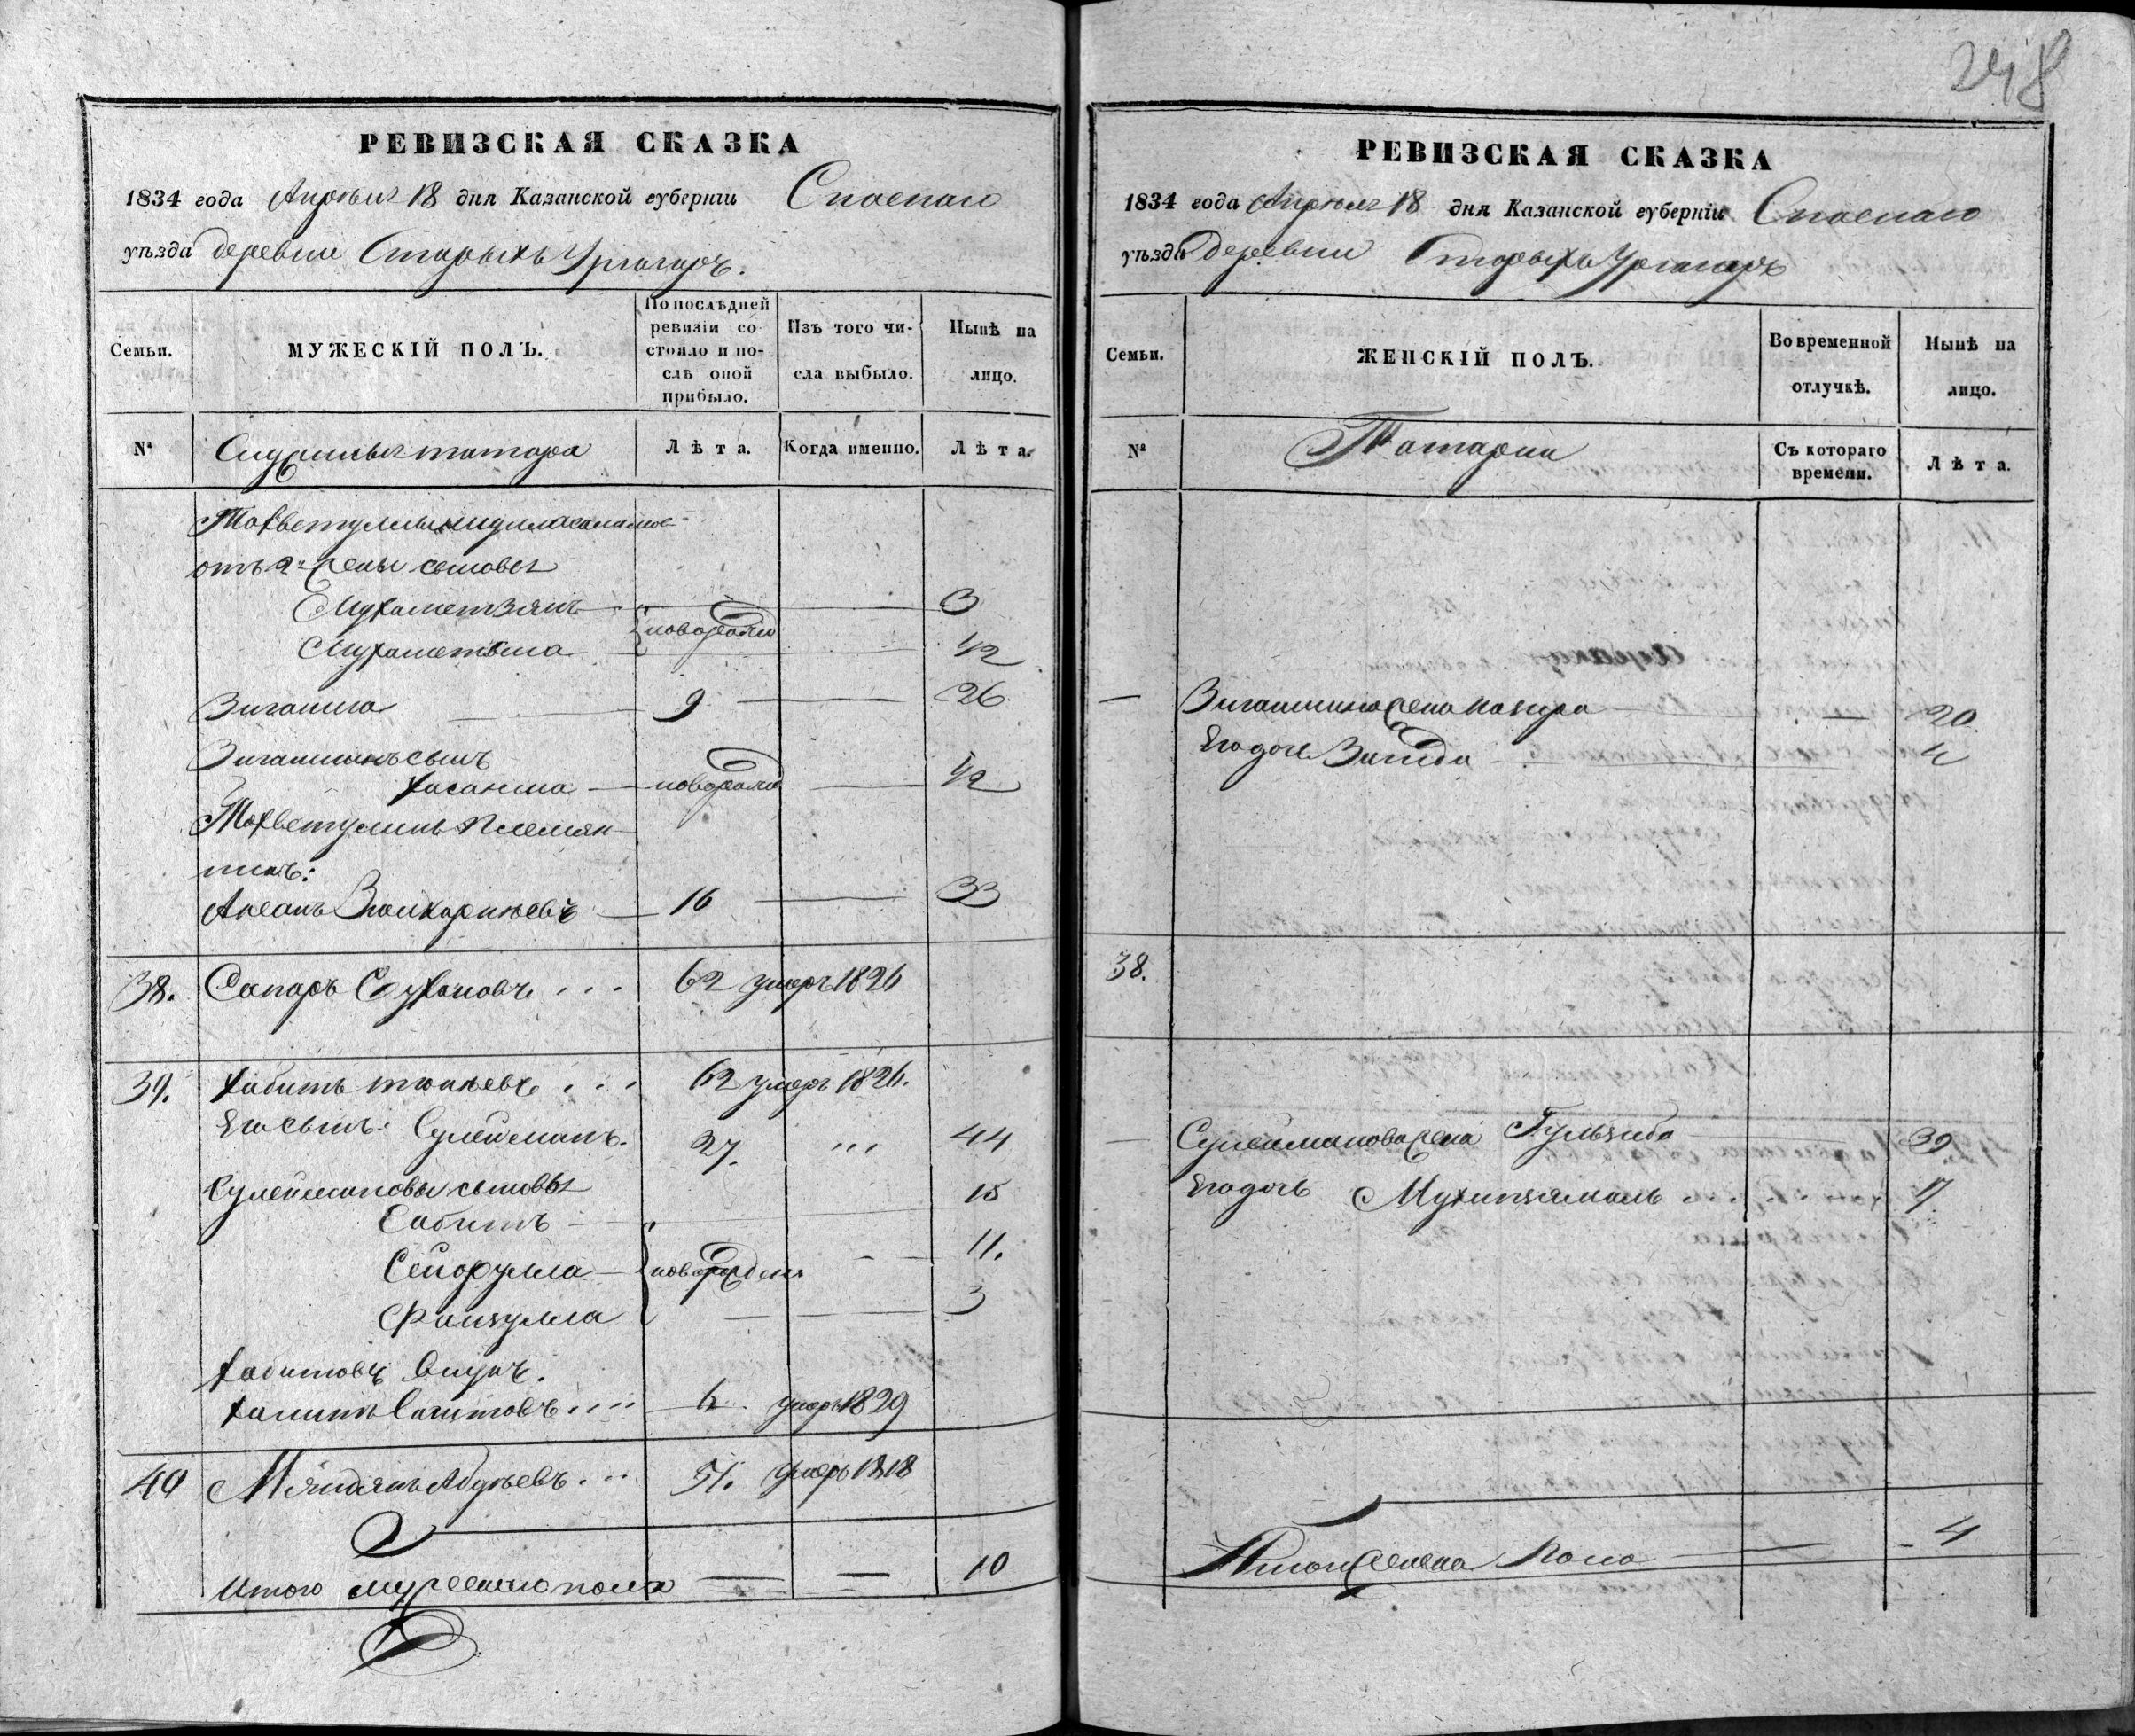 248
РЕВИЗСКАЯ СКАЗКА
1834 года Апреля 18 дня Казанской губерніи Спаскаго
уѣзда деревни Старыхъ Ургагаръ.
Семьи.
МУЖЕСКІЙ ПОЛЪ.
По послѣдней ревизіи состояло и послѣ оной прибыло.
Изъ того числа выбыло.
Нынѣ на лицо.
№
татара
Лѣта.
Когда именно.
Лѣта.
Тохветуллы
отъ 2й жены сыновья
Мухаметзянъ 3
новорожд
Мухаметша 1/2
Зиганша 9 26
Зиганшинъ сынъ
Хасанша новорожд 1/2
Тохветуллинъ племян-
никъ:
Апсанъ 16 33
38. Сапаръ 62 умеръ 1826
39. Хабитъ 62 умеръ 1826.
Его сынъ: Сулейманъ. 27. 44
Сулеймановы сыновья 15
Сабитъ
Сейфулла новорожден 11.
Фаизулла 3
Хабитовъ внукъ.
Халитъ Сагитовъ 6 умеръ 1829
40 Абдуевъ 51. умеръ 1818
Итого мужескаго пола 10
РЕВИЗСКАЯ СКАЗКА
1834 года Апреля 18 дня Казанской губерніи Спаскаго
уѣзда деревни Старыхъ Ургагаръ
Семьи.
ЖЕНСКІЙ ПОЛЪ.
Во временной отлучкѣ.
Нынѣ на лицо.
№
Татарки
Съ котораго времени.
Лѣта.
Зиганшина жена Назира 20
Его дочь Загида 4
38.
Сулейманова жена Гульзиба 39
Его дочь Мухипзямаль 7
Итого женска пола 4